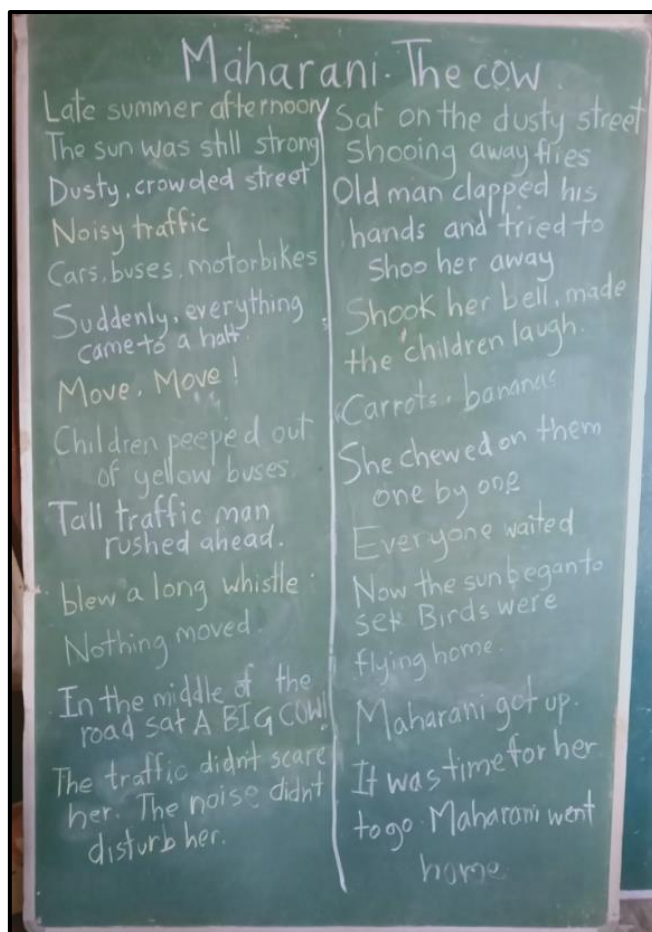 Maharani. The cow.
Late summer afternoon
The sun was still strong
Dusty, crowded street
Noisy traffic
Cars, buses, motorbikes
Suddenly, everything
came to a halt.
Move, Move!
Children peeped out
of yellow buses.
Tall traffic man
rushed ahead.
blew a long whistle.
Nothing moved.
In the middle of the
road sat A BIG COW!
The traffic didn't scare
her. The noise didn't
disturb her.
Sat on the dusty street
Shooing away flies
Old man clapped his
hands and tried to
shoo her away
Shook her bell, made
the children laugh.
Carrots, bananas
She chewed on them
one by one
Everyone waited
Now the sun began to
set. Birds were
flying home.
Maharani got up.
It was time for her
to go. Maharani went
home